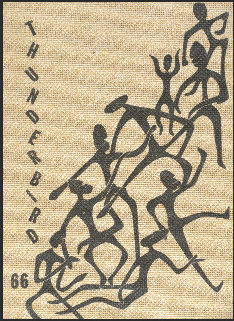 THUNDERBIRD
66